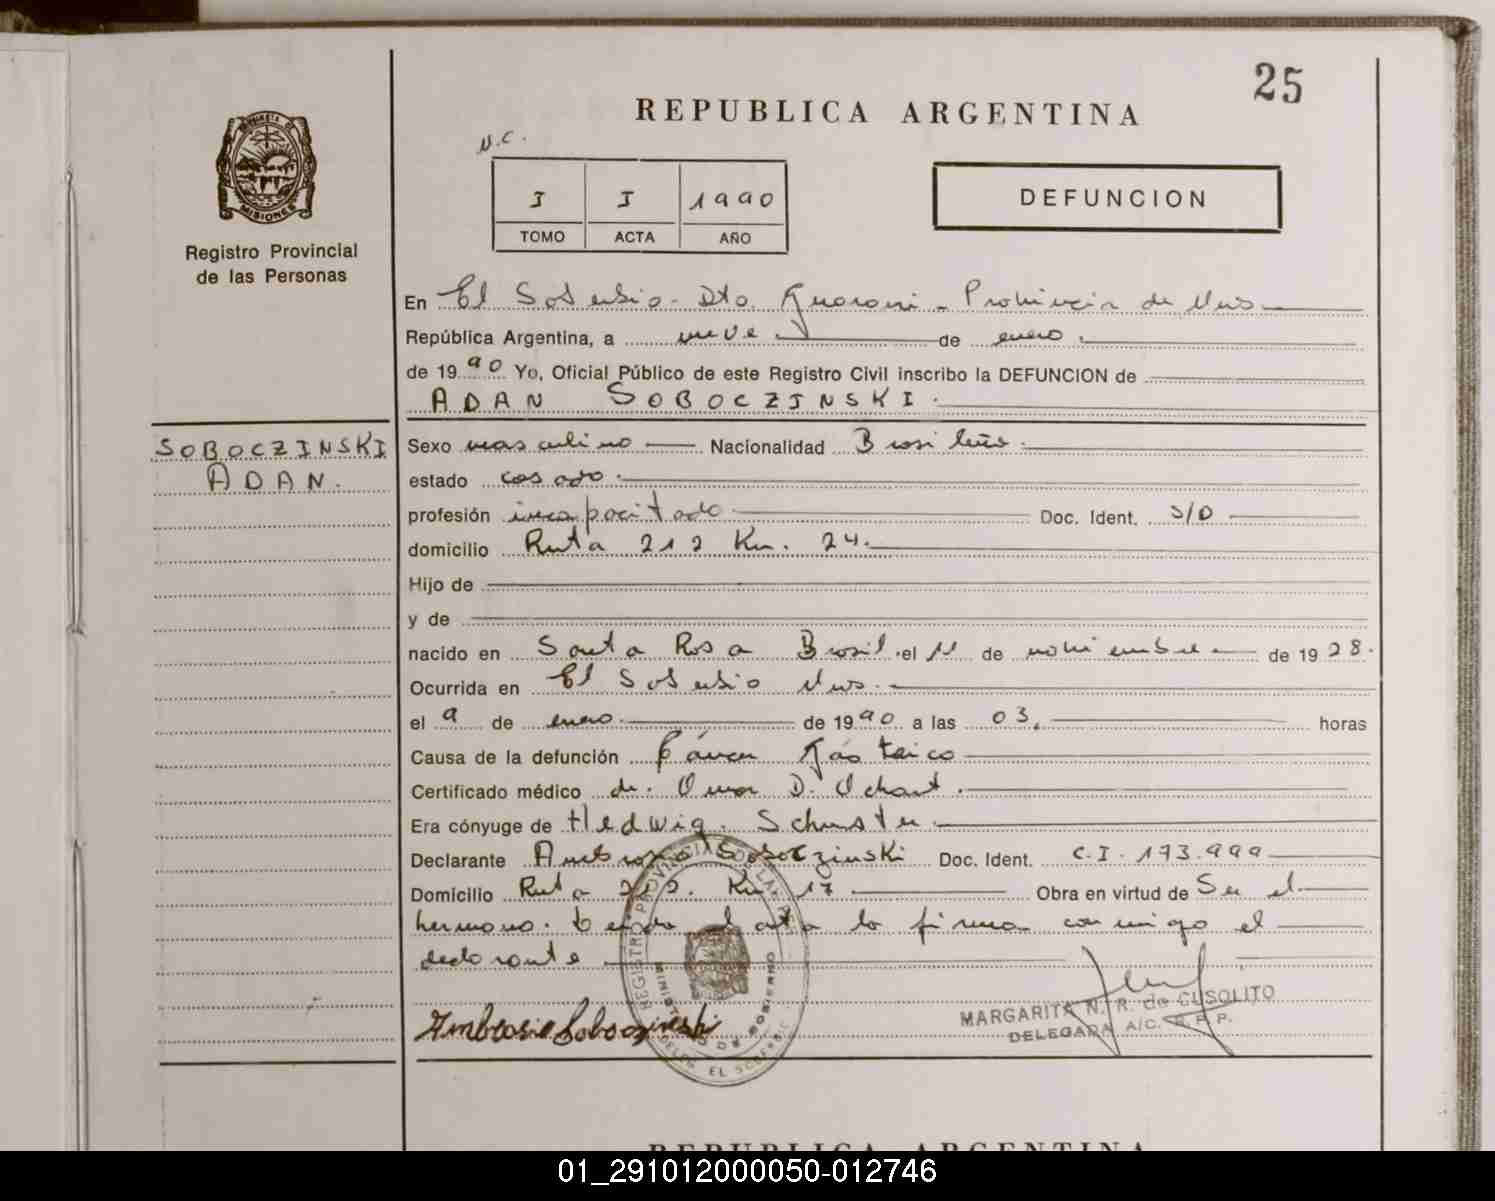 25
REPUBLICA ARGENTINA
N.C.
I I 1990
TOMO ACTA AÑO
DEFUNCION
MISIONES
Registro Provincial
de las Personas
En El Soberbio - Dto. Guarani - Provincia de Mnes
República Argentina, a nueve de enero.
de 1990 Yo, Oficial Público de este Registro Civil inscribo la DEFUNCION de
ADAN SOBOCZINSKI.
SOBOCZINSKI
ADAN.
Sexo masculino Nacionalidad Brasileño.
estado casado.
profesión incapacitado Doc. Ident. S/D
domicilio Ruta 212 Km. 24.
Hijo de
y de
nacido en Santa Rosa Brasil el 11 de noviembre de 1928.
Ocurrida en El Soberbio Mnes.
el 9 de enero. de 1990 a las 03. horas
Causa de la defunción Cáncer Gástrico
Certificado médico dr. Omar D.
Era cónyuge de Hedwig. Schuster.
Declarante Ambrosio Soboczinski Doc. Ident. C.I. 173.999
Domicilio Ruta 212. Km 17 Obra en virtud de Ser el
hermano. Leida el acta la firma conmigo el
declarante
Ambrosio Soboczinski
REGISTRO PROVINCIAL DE LAS
MINISTERIO DE GOBIERNO
DELEG. EL SOBERBIO
MARGARITA N. R. de CUSOLITO
DELEGADA A/C. R. P. P.
REPUBLICA ARGENTINA
01_291012000050-012746